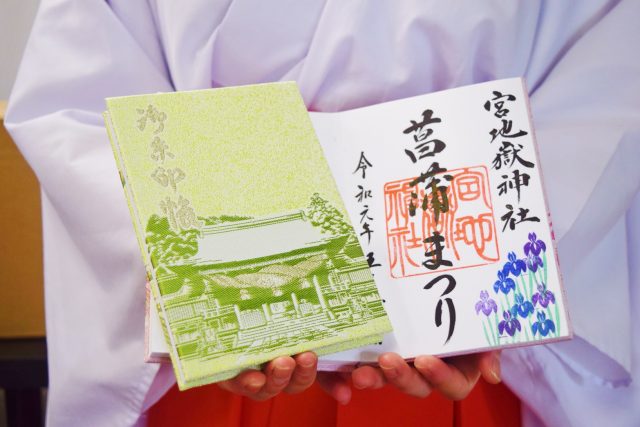 御朱印帳
宮地嶽神社
菖蒲まつり
宮地
嶽
神社
令和元年五